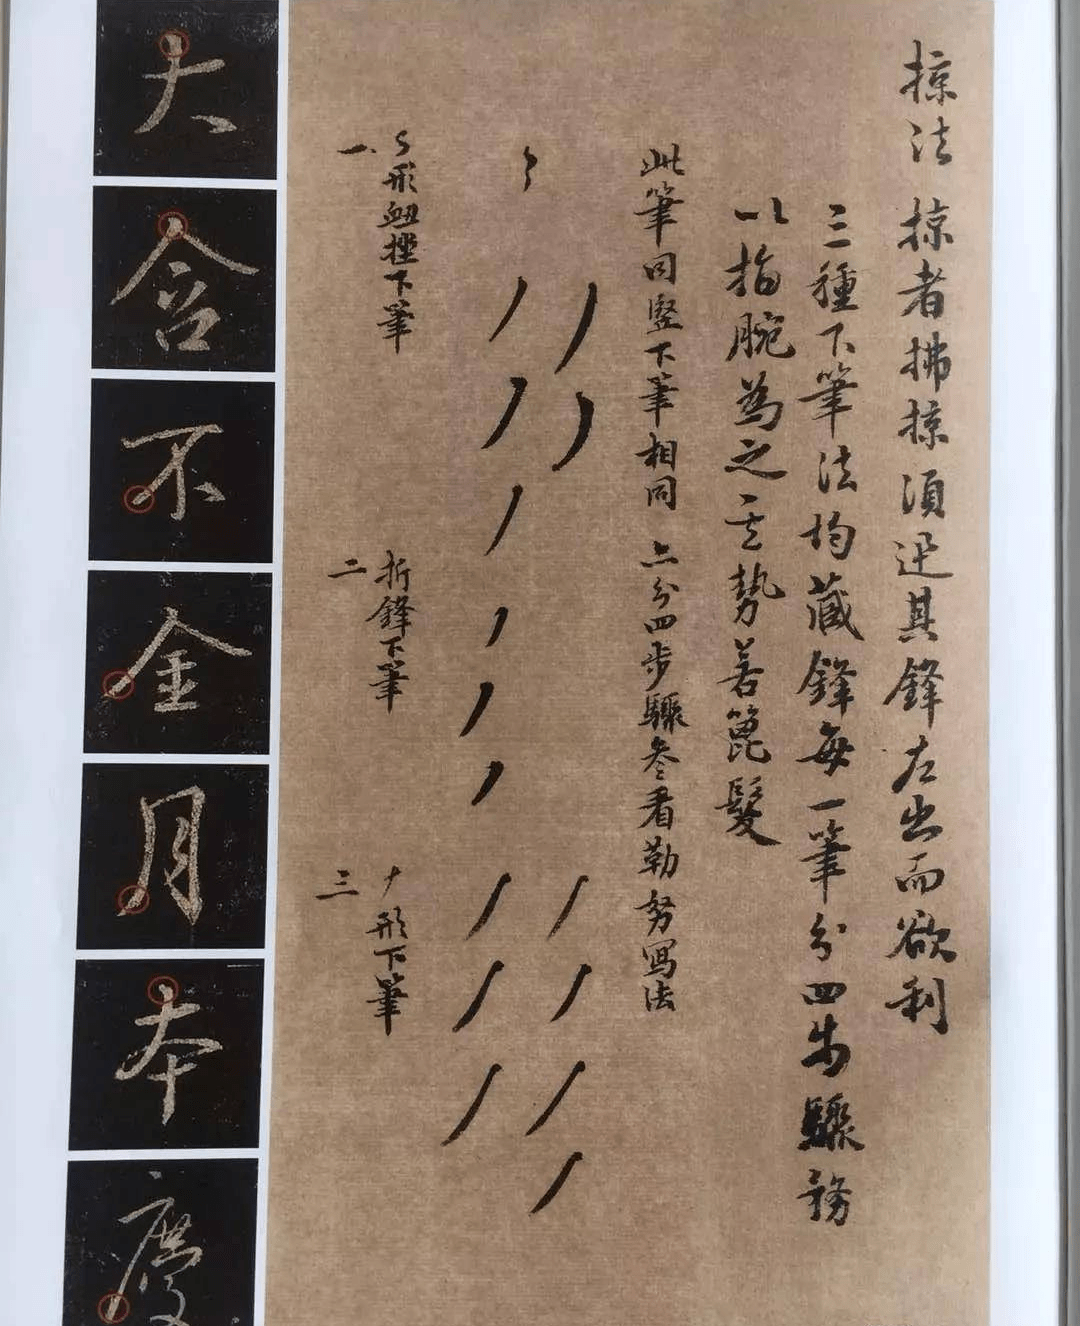 掠法 掠者拂掠須迅其鋒左出而欲利
三種下筆法均藏鋒每一筆分四步驟務
以指腕為之其勢若篦髮
此筆同竪下筆相同 亦分四步驟參看勒努寫法
一、
形衄挫下筆
二
折鋒下筆
三
形下筆
大
含
不
金
月
本
慶